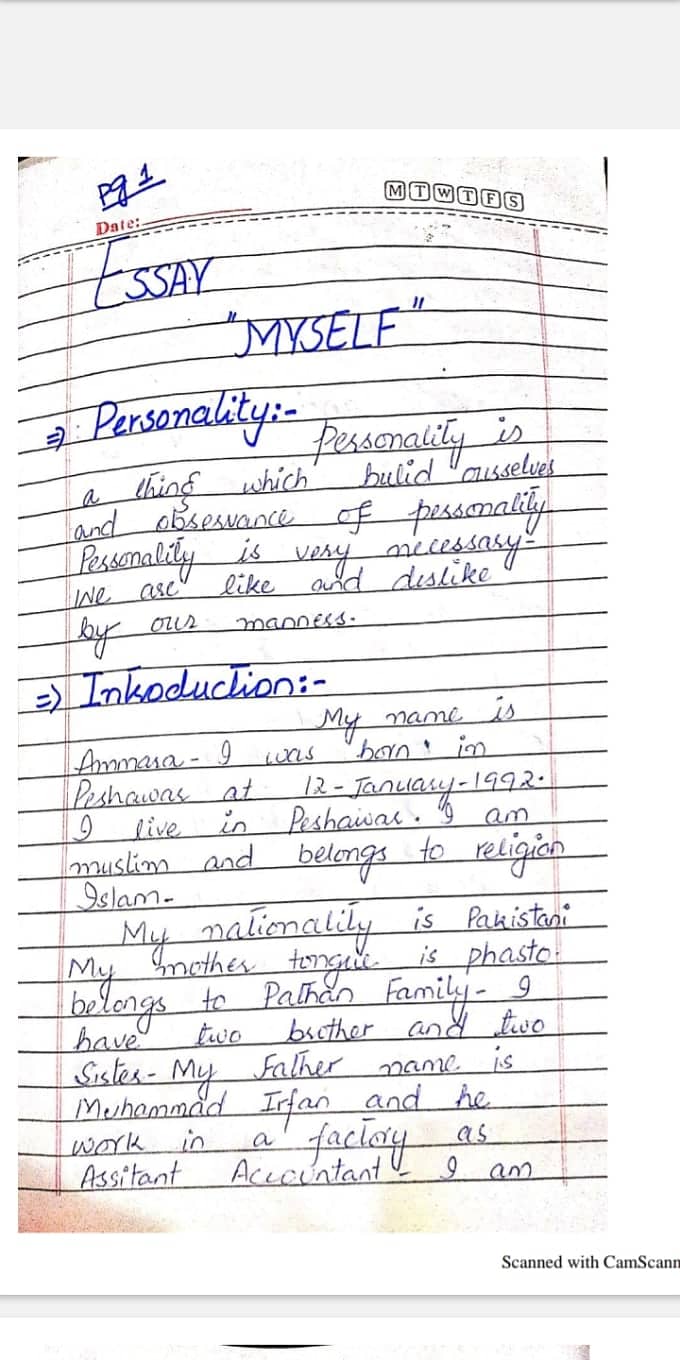 pg 1
M T W T F S
Date:
ESSAY
"MYSELF"
⇒ Personality:-
Personality is
a thing which bulid ourselves
and observance of personality
Personality is very necessary-
We are like and dislike
by our manners.
⇒ Introduction:-
My name is
Ammara - I was born in
Peshawar at 12-January-1992.
I live in Peshawar. I am
muslim and belongs to religion
Islam-
My nationality is Pakistani
My mother tongue is phasto.
belongs to Pathan Family- I
have two brother and two
Sister- My Father name is
Muhammad Irfan and he
work in a factory as
Assitant Accountant - I am
Scanned with CamScann